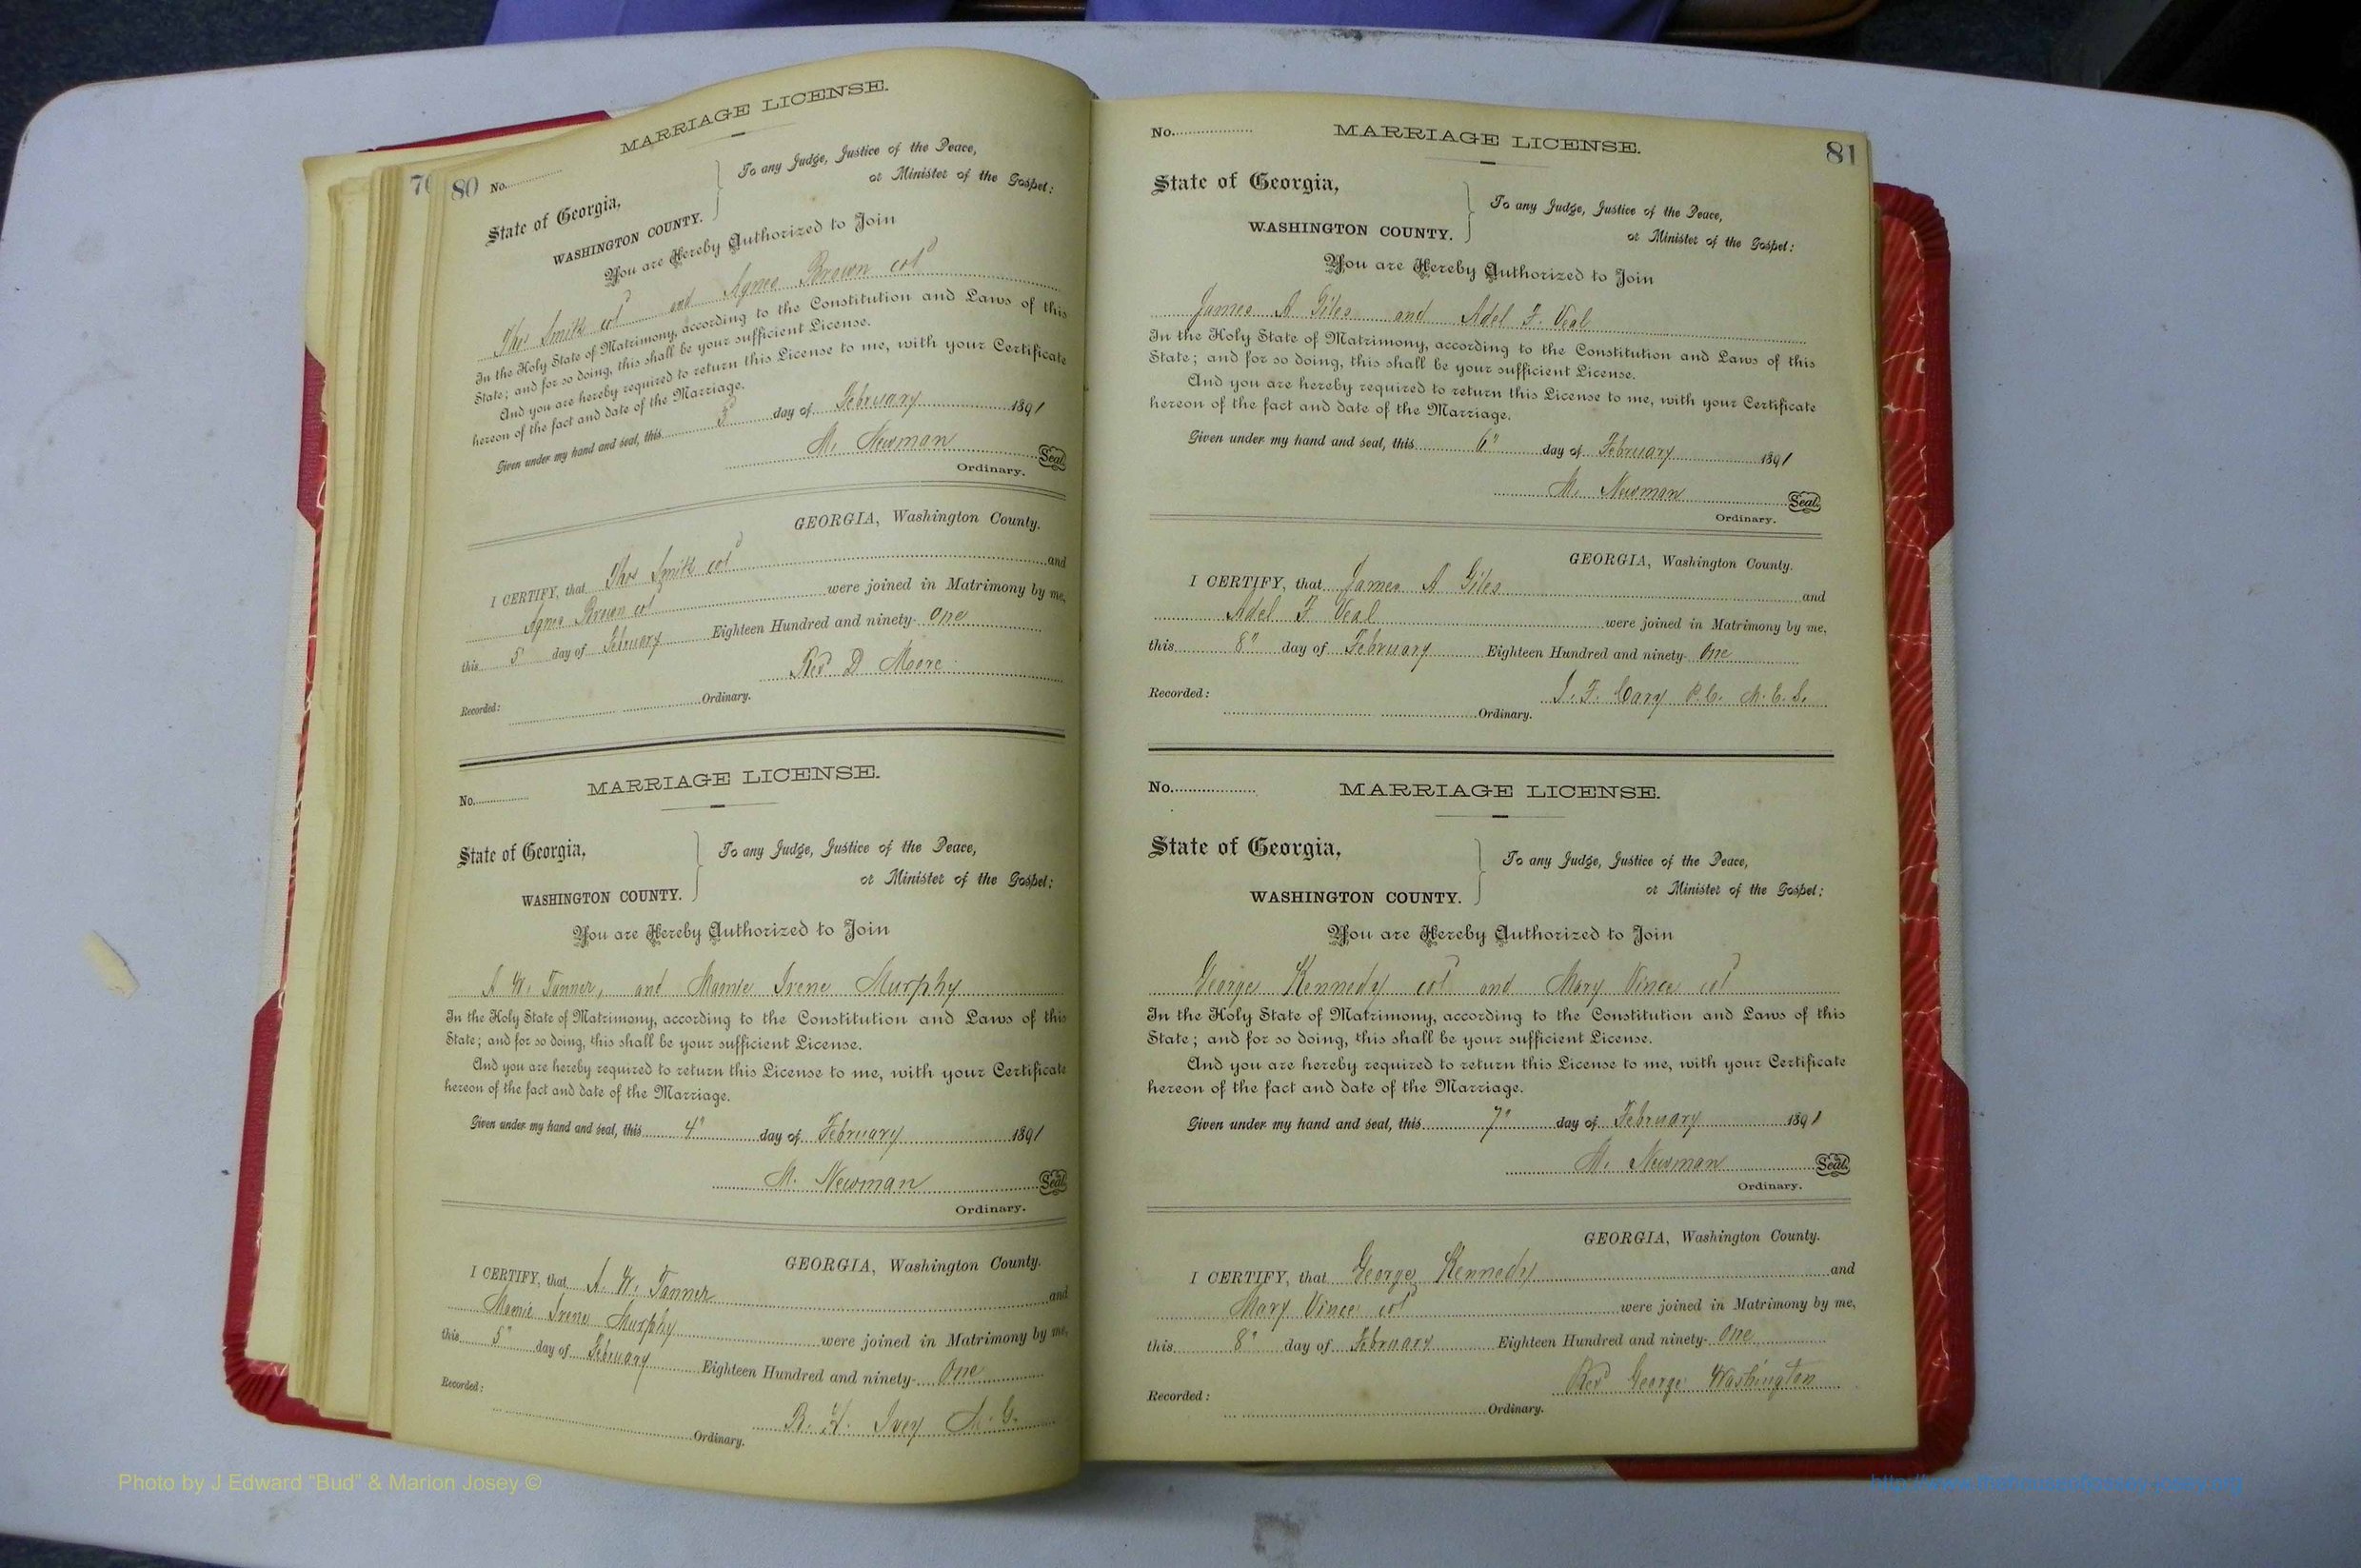 76 80 No.
MARRIAGE LICENSE.
State of Georgia,
WASHINGTON COUNTY.
To any Judge, Justice of the Peace,
or Minister of the Gospel:
You are Hereby Authorized to Join
Thos Smith cold and Agnes Brown cold
In the Holy State of Matrimony, according to the Constitution and Laws of this
State; and for so doing, this shall be your sufficient License.
And you are hereby required to return this License to me, with your Certificate
hereon of the fact and date of the Marriage.
Given under my hand and seal, this 3 day of February 1891
M. Newman Seal
Ordinary.
GEORGIA, Washington County.
I CERTIFY, that Thos Smith cold and
Agnes Brown cold were joined in Matrimony by me,
this 5 day of February Eighteen Hundred and ninety-One
Revd D Moore
Recorded: Ordinary.
No. MARRIAGE LICENSE.
State of Georgia,
WASHINGTON COUNTY.
To any Judge, Justice of the Peace,
or Minister of the Gospel:
You are Hereby Authorized to Join
A W. Tanner, and Mamie Irene Murphy
In the Holy State of Matrimony, according to the Constitution and Laws of this
State; and for so doing, this shall be your sufficient License.
And you are hereby required to return this License to me, with your Certificate
hereon of the fact and date of the Marriage.
Given under my hand and seal, this 4" day of February 1891
M. Newman Seal
Ordinary.
GEORGIA, Washington County.
I CERTIFY, that A. W. Tanner and
Mamie Irene Murphy were joined in Matrimony by me,
this 5" day of February Eighteen Hundred and ninety-One
B. H. Ivey M. G.
Recorded: Ordinary.
No. MARRIAGE LICENSE. 81
State of Georgia,
WASHINGTON COUNTY.
To any Judge, Justice of the Peace,
or Minister of the Gospel:
You are Hereby Authorized to Join
James A Giles and Adel F. Veal
In the Holy State of Matrimony, according to the Constitution and Laws of this
State; and for so doing, this shall be your sufficient License.
And you are hereby required to return this License to me, with your Certificate
hereon of the fact and date of the Marriage.
Given under my hand and seal, this 6" day of February 1891
M. Newman Seal
Ordinary.
GEORGIA, Washington County.
I CERTIFY, that James A Giles and
Adel F Veal were joined in Matrimony by me,
this 8" day of February Eighteen Hundred and ninety-One
F. Cary P.C. M.E.S.
Recorded: Ordinary.
No. MARRIAGE LICENSE.
State of Georgia,
WASHINGTON COUNTY.
To any Judge, Justice of the Peace,
or Minister of the Gospel:
You are Hereby Authorized to Join
George Kennedy cold and Mary Vince cold
In the Holy State of Matrimony, according to the Constitution and Laws of this
State; and for so doing, this shall be your sufficient License.
And you are hereby required to return this License to me, with your Certificate
hereon of the fact and date of the Marriage.
Given under my hand and seal, this 7" day of February 1891
M. Newman Seal
Ordinary.
GEORGIA, Washington County.
I CERTIFY, that George Kennedy and
Mary Vince cold were joined in Matrimony by me,
this 8" day of February Eighteen Hundred and ninety-One
Revd George Washington
Recorded: Ordinary.
Photo by J Edward "Bud" & Marion Josey ©